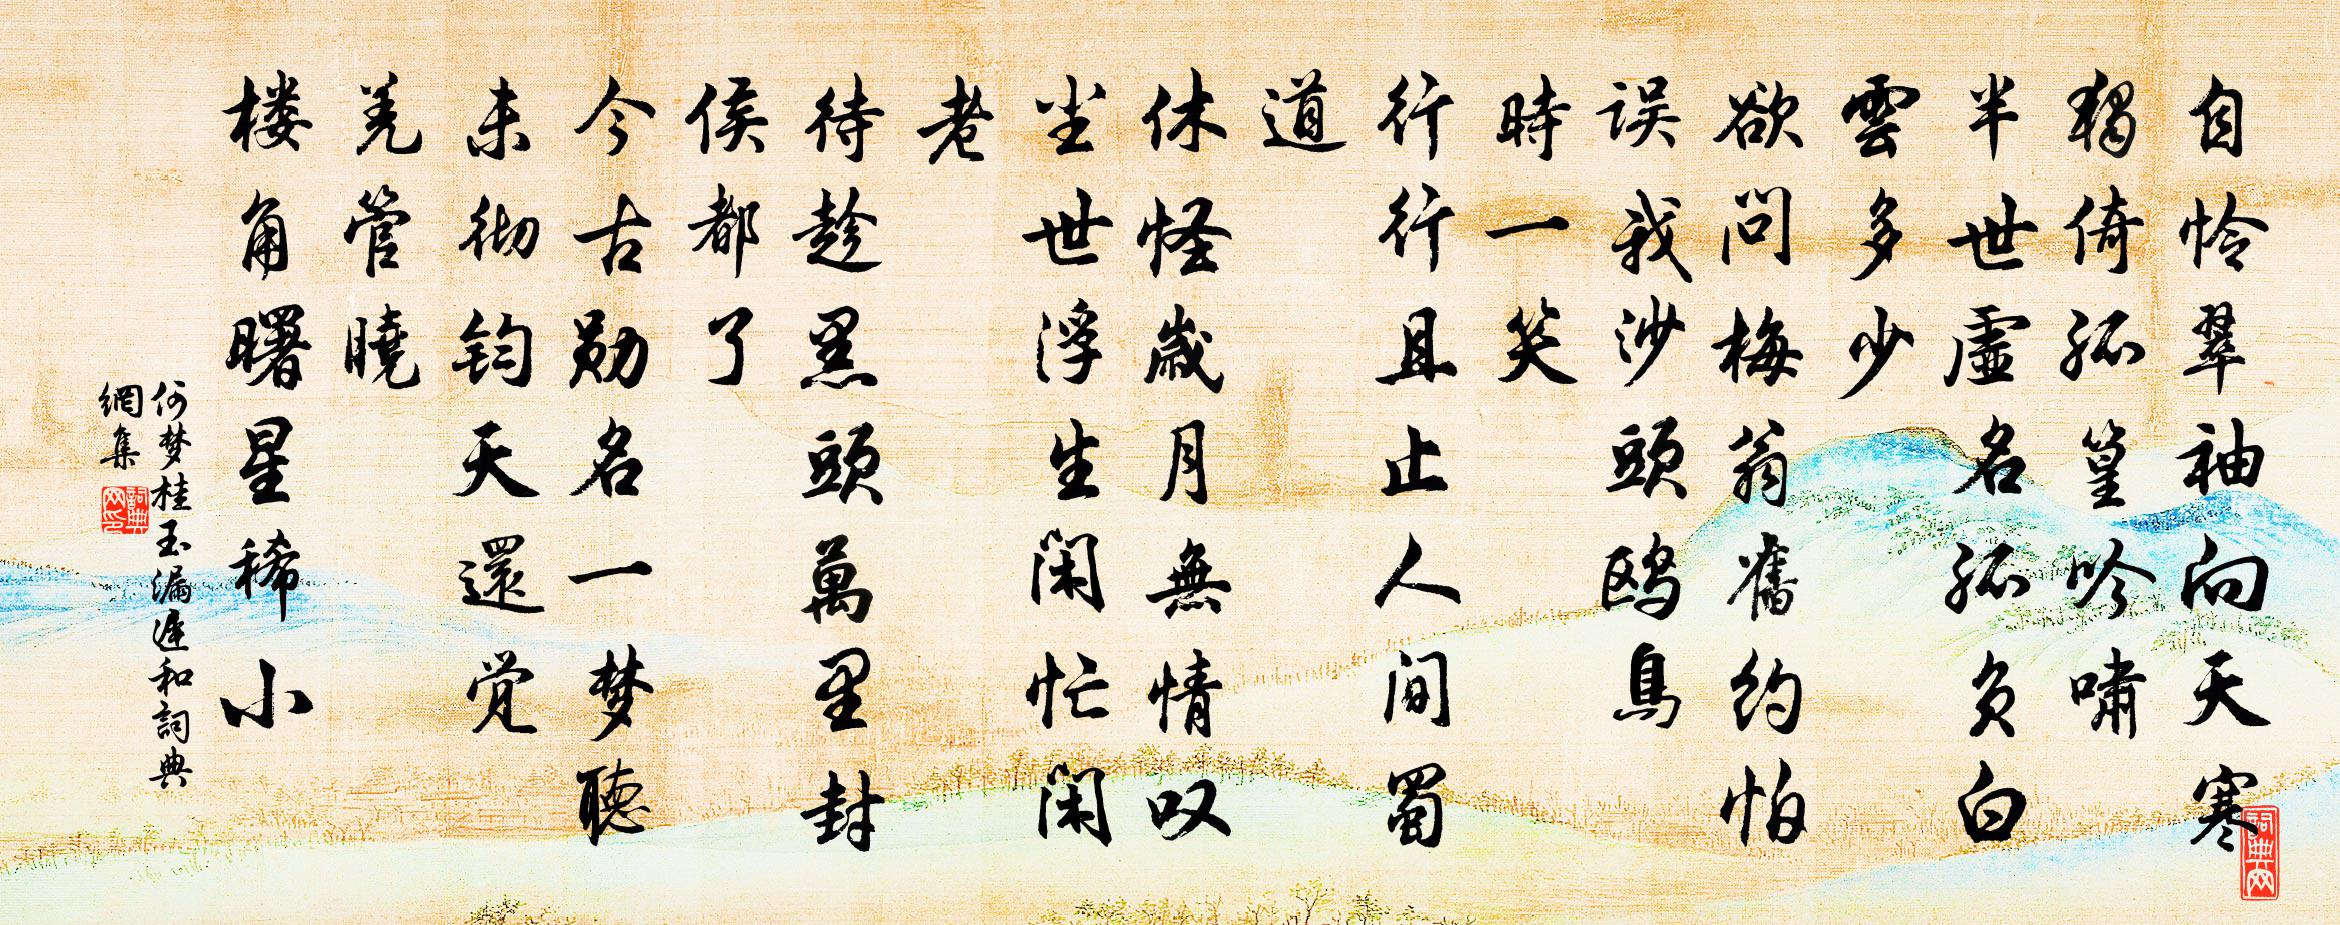 自怜翠袖向天寒
独倚孤篁吟啸
半世虚名孤负白
雲多少
欲问梅翁舊约怕
误我沙頭鸥鳥
時一笑
行行且止人间蜀
道
休怪歲月無情叹
尘世浮生闲忙闲
老
待趁黑頭萬里封
侯都了
今古勋名一梦聽
未彻钧天還觉
羌管曉
楼角曙星稀小
何梦桂玉漏迟和詞典
網集
詞典网印
詞典网